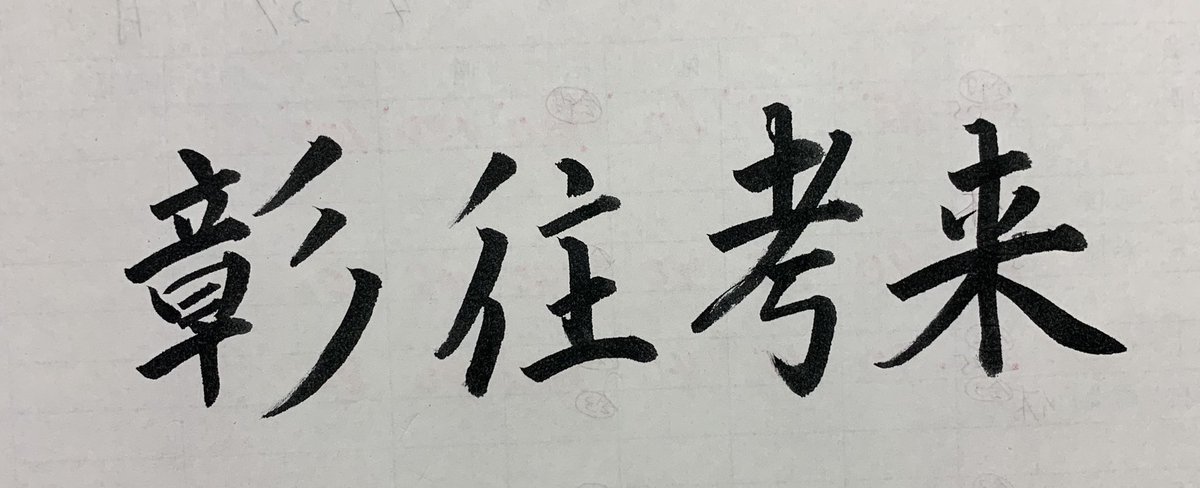 彰往考来